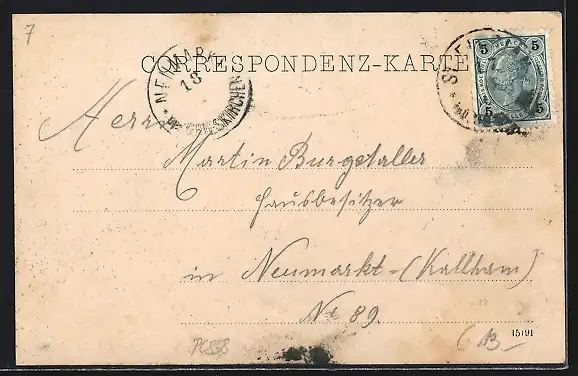 7
CORRESPONDENZ-KARTE
NEUMARKT
18
GRIESKIRCHEN
5 5
5 5
Herrn
Martin Burgstaller
Hausbesitzer
in Neumarkt-(Kallham)
No 89.
15191